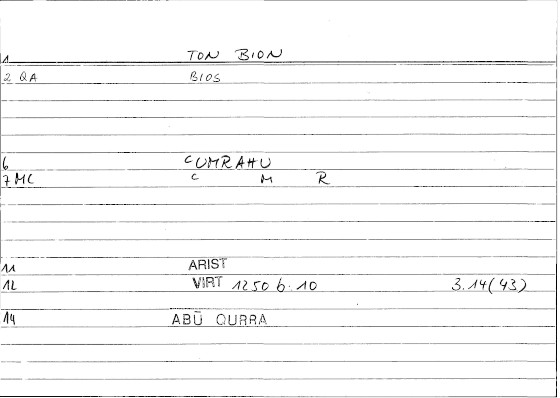 1 TON BION
2 QA BIOS
6 ᶜUMRAHU
7 MC ᶜ M R
11 ARIST
12 VIRT 1250 b 10 3.14(43)
14 ABŪ QURRA